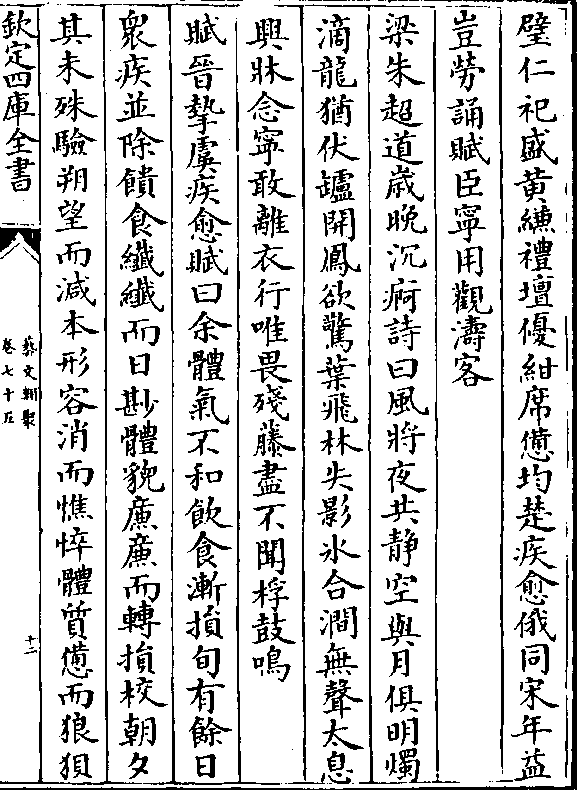 璧仁祀盛黄縑禮壇優紺席憊均楚疾愈俄同宋年益
豈勞誦賦臣寧用觀濤客
梁朱超道歲晚沉痾詩曰風將夜共静空與月俱明燭
滴龍猶伏罏開鳳欲驚葉飛林失影氷合澗無聲太息
興牀念寧敢離衣行唯畏殘藤盡不聞桴鼓鳴
賦晉摯虞疾愈賦曰余體氣不和飲食漸損旬有餘日
衆疾並除饋食纖纖而日尠體貌廉廉而轉損校朝夕
其未殊驗朔望而減本形容消而憔悴體質憊而狼狽
欽定四庫全書
藝文類聚
卷七十五
十二